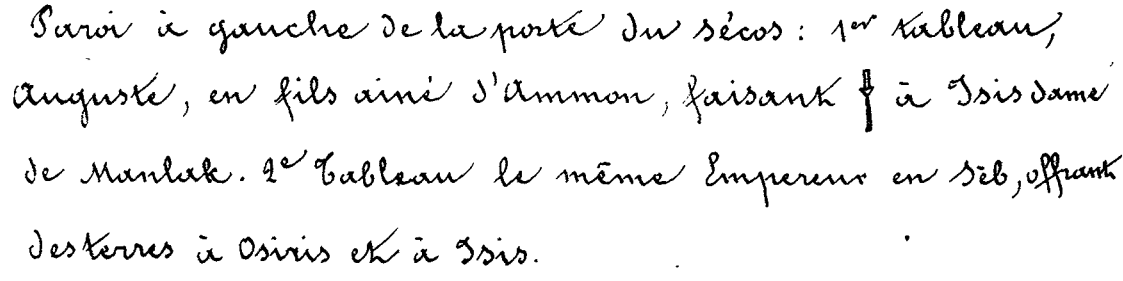 Paroi à gauche de la porte du sécos : 1er tableau,
Auguste, en fils ainé d'Ammon, faisant à Isis dame
de Manlak. 2e Tableau le même Empereur en Sèb, offrant
des terres à Osiris et à Isis.